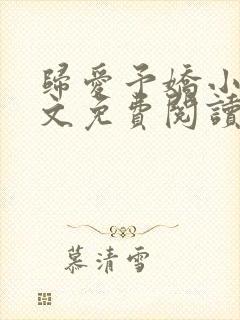 歸愛予嬌小
文免費閱讀
慕清雪